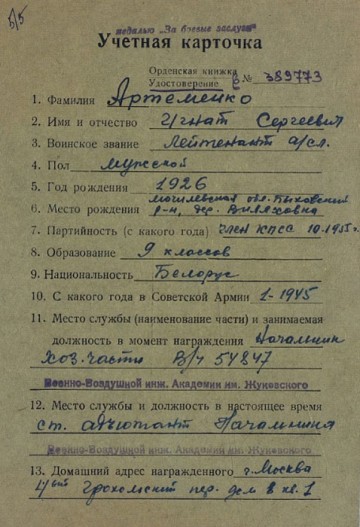 б/5
медалью „За боевые заслуги"
Учетная карточка
Орденская книжка
Удостоверение Б № 389773
1. Фамилия Артеменко
2. Имя и отчество Игнат Сергеевич
3. Воинское звание Лейтенант а/сл.
4. Пол мужской
5. Год рождения 1926
Могилевская обл. Быховский
6. Место рождения р-н, дер. Виляховка
7. Партийность (с какого года) член КПСС 10.1955 г.
8. Образование 9 классов
9. Национальность Белорус
10. С какого года в Советской Армии 1-1945
11. Место службы (наименование части) и занимаемая
должность в момент награждения Начальник
хоз. части В/ч 54847
Военно-Воздушной инж. Академии им. Жуковского
12. Место службы и должность в настоящее время
ст. адъютант Начальника
Военно-Воздушной инж. Академии им. Жуковского
13. Домашний адрес награжденного г. Москва
пер. дом 8 кв. 1